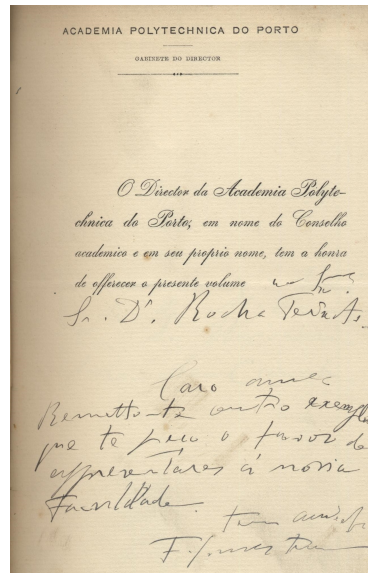 ACADEMIA POLYTECHNICA DO PORTO
GABINETE DO DIRECTOR
O Director da Academia Polyte-
chnica do Porto, em nome do Conselho
academico e em seu proprio nome, tem a honra
de offerecer o presente volume
Sr. Dr. Rocha
Caro
Remetto-te outro
que te peço o favor de
apresentares á nossa
Faculdade.
F. Gomes